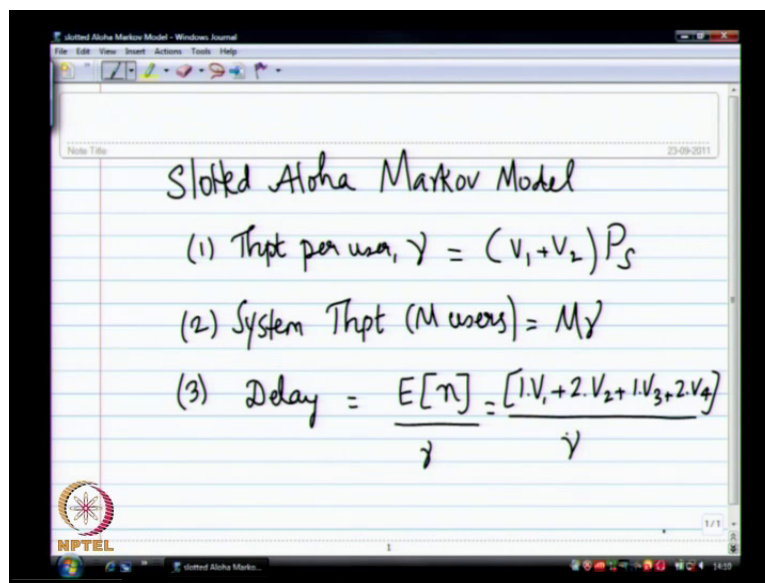 slotted Aloha Markov Model - Windows Journal
File Edit View Insert Actions Tools Help
Note Title
23-09-2011
Slotted Aloha Markov Model
(1) Thpt per user, γ = (V₁+V₂)Pₛ
(2) System Thpt (M users) = Mγ
(3) Delay = E[n]/γ = [1.V₁+2.V₂+1.V₃+2.V₄]/γ
1/1
1
NPTEL
slotted Aloha Marko...
14:10